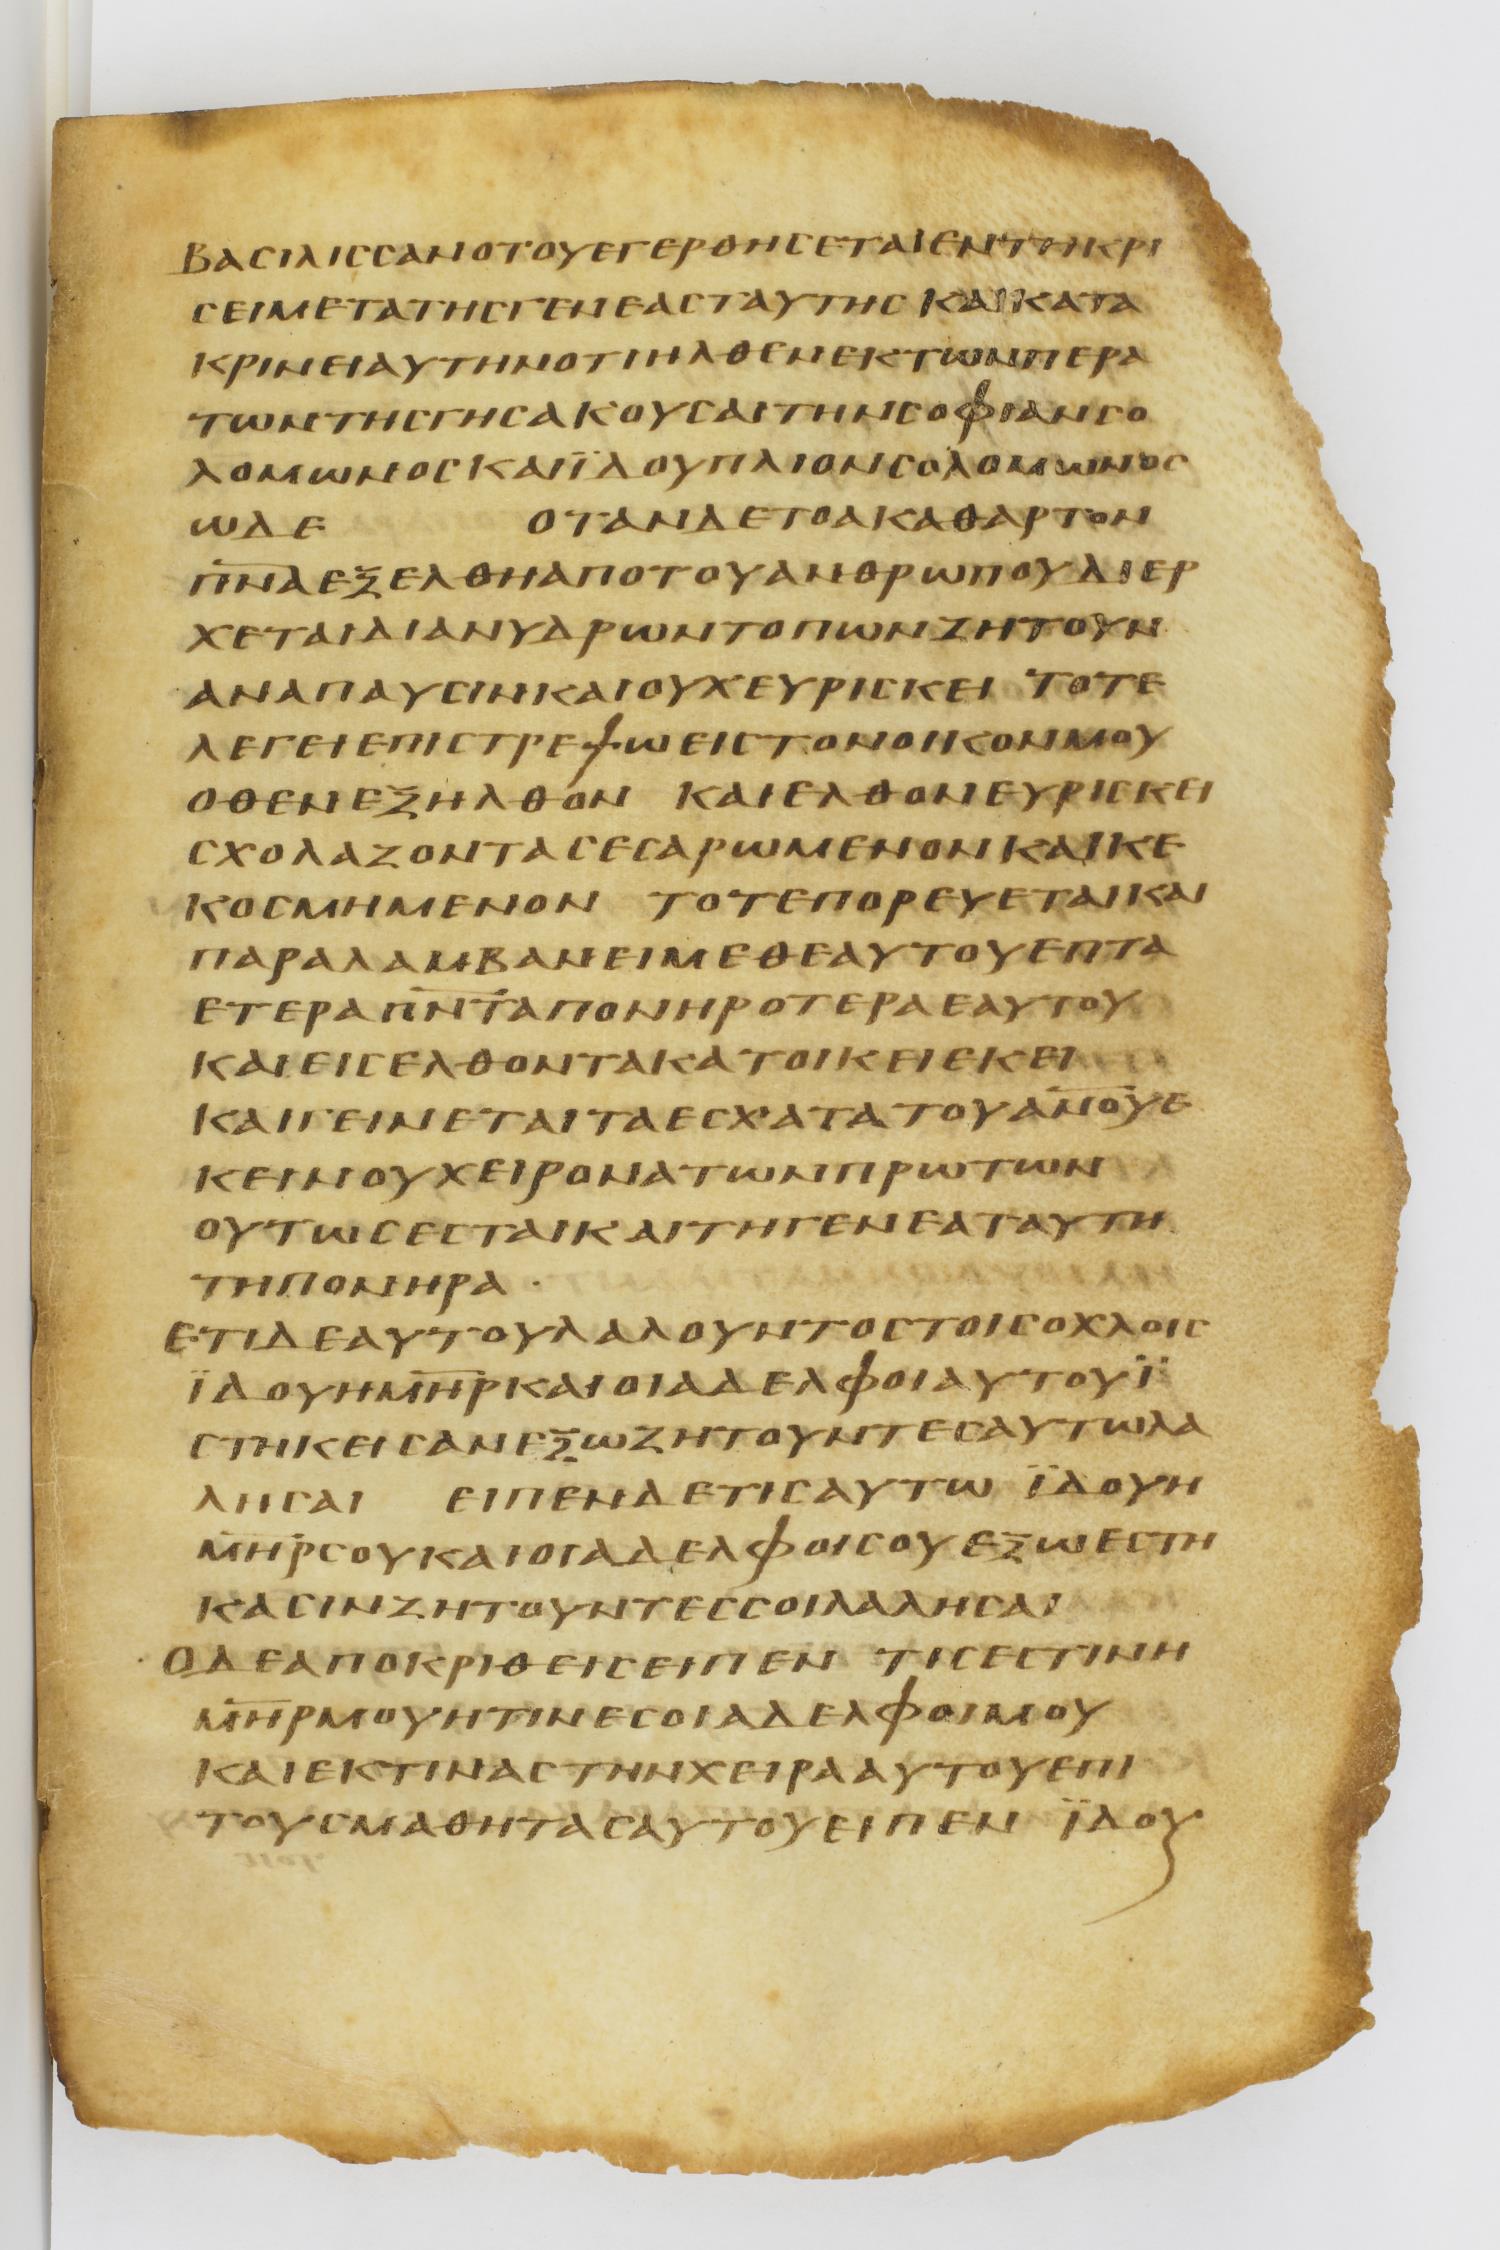 ΒΑСΙΛΙССΑΝΟΤΟΥΕΓΕΡΘΗСΕΤΑΙΕΝΤΗΚΡΙ
СΕΙΜΕΤΑΤΗСΓΕΝΕΑСΤΑΥΤΗСΚΑΙΚΑΤΑ
ΚΡΙΝΕΙΑΥΤΗΝΟΤΙΗΛΘΕΝΕΚΤΩΝΠΕΡΑ
ΤΩΝΤΗСΓΗСΑΚΟΥСΑΙΤΗΝСΟΦΙΑΝСΟ
ΛΟΜΩΝΟСΚΑΙΪΔΟΥΠΛΙΟΝСΟΛΟΜΩΝΟС
ΩΔΕ ΟΤΑΝΔΕΤΟΑΚΑΘΑΡΤΟΝ
Π̅Ν̅Α̅ΕΞΕΛΘΗΑΠΟΤΟΥΑΝΘΡΩΠΟΥΔΙΕΡ
ΧΕΤΑΙΔΙΑΝΥΔΡΩΝΤΟΠΩΝΖΗΤΟΥΝ
ΑΝΑΠΑΥСΙΝΚΑΙΟΥΧΕΥΡΙСΚΕΙ ΤΟΤΕ
ΛΕΓΕΙΕΠΙСΤΡΕΨΩΕΙСΤΟΝΟΙΚΟΝΜΟΥ
ΟΘΕΝΕΞΗΛΘΟΝ ΚΑΙΕΛΘΟΝΕΥΡΙСΚΕΙ
СΧΟΛΑΖΟΝΤΑСΕСΑΡΩΜΕΝΟΝΚΑΙΚΕ
ΚΟСΜΗΜΕΝΟΝ ΤΟΤΕΠΟΡΕΥΕΤΑΙΚΑΙ
ΠΑΡΑΛΑΜΒΑΝΕΙΜΕΘΕΑΥΤΟΥΕΠΤΑ
ΕΤΕΡΑΠ̅Ν̅Τ̅Α̅ΠΟΝΗΡΟΤΕΡΑΕΑΥΤΟΥ
ΚΑΙΕΙСΕΛΘΟΝΤΑΚΑΤΟΙΚΕΙΕΚΕΙ
ΚΑΙΓΕΙΝΕΤΑΙΤΑΕСΧΑΤΑΤΟΥΑ̅Ν̅Ο̅Υ̅Ε
ΚΕΙΝΟΥΧΕΙΡΟΝΑΤΩΝΠΡΩΤΩΝ
ΟΥΤΩСΕСΤΑΙΚΑΙΤΗΓΕΝΕΑΤΑΥΤΗ
ΤΗΠΟΝΗΡΑ·
ΕΤΙΔΕΑΥΤΟΥΛΑΛΟΥΝΤΟСΤΟΙСΟΧΛΟΙС
ΪΔΟΥΗΜ̅Η̅Ρ̅ΚΑΙΟΙΑΔΕΛΦΟΙΑΥΤΟΥΪ
СΤΗΚΕΙСΑΝΕΞΩΖΗΤΟΥΝΤΕСΑΥΤΩΛΑ
ΛΗСΑΙ ΕΙΠΕΝΔΕΤΙСΑΥΤΩ ΪΔΟΥΗ
Μ̅Η̅Ρ̅СΟΥΚΑΙΟΙΑΔΕΛΦΟΙСΟΥΕΞΩΕСΤΗ
ΚΑСΙΝΖΗΤΟΥΝΤΕССΟΙΛΑΛΗСΑΙ
ΟΔΕΑΠΟΚΡΙΘΕΙСΕΙΠΕΝ ΤΙСΕСΤΙΝΗ
Μ̅Η̅Ρ̅ΜΟΥΗΤΙΝΕСΟΙΑΔΕΛΦΟΙΜΟΥ
ΚΑΙΕΚΤΙΝΑСΤΗΝΧΕΙΡΑΑΥΤΟΥΕΠΙ
ΤΟΥСΜΑΘΗΤΑСΑΥΤΟΥΕΙΠΕΝ ΪΔΟΥ